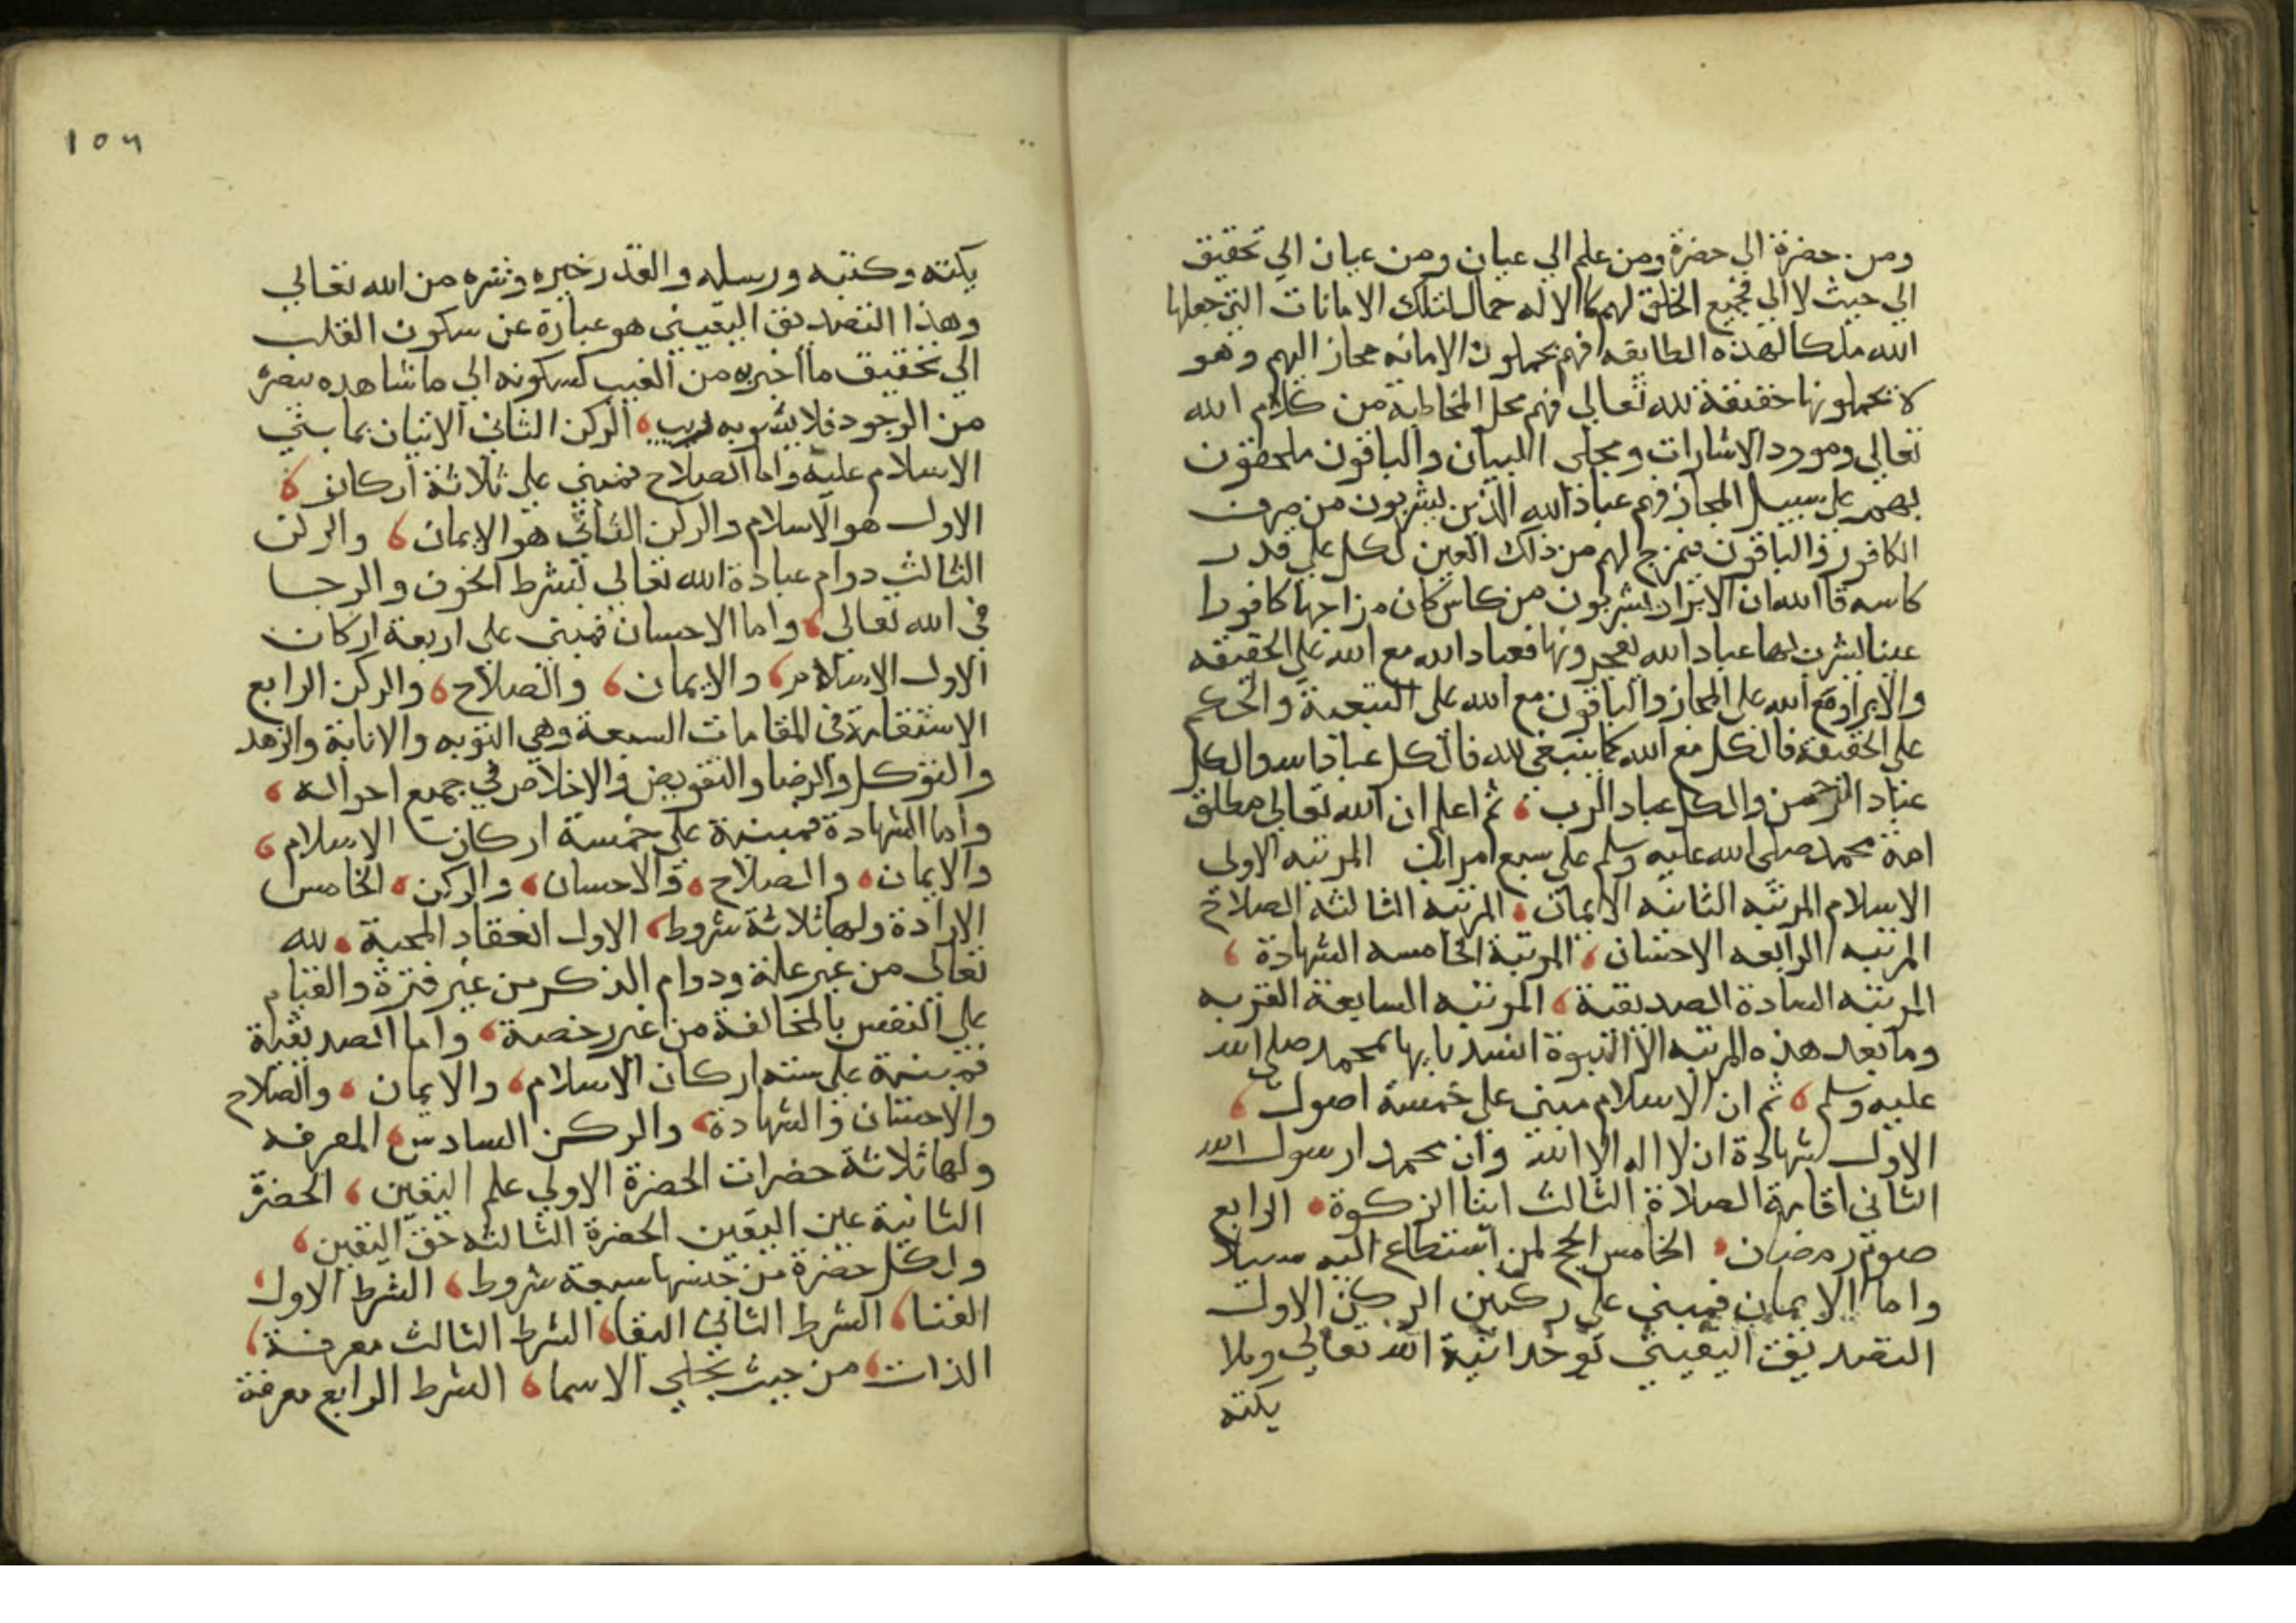 ومن حضرة الى حضرة ومن علم الي عيان ومن عيان الي تحقيق
الي حيث لا الي فجميع الخلق لهم كالاله حمالسا تلك الامانات التي جعلها
الله ملكا لهذه الطايفه فهم يحملون الامانه مجاز اليهم وهو
لا يحملونها حقيقة لله تعالي فهم محل المخاطبة من كلام الله
تعالي ومورد الاشارات ومجلى البيان والباقون ملحقون
بهم على سبيل المجاز فهم عباد الله الذين يشربون من صرف
الكافور والباقون يمزج لهم من ذلك العين لكل على قدر
كاسه قا الله ان الابرار يشربون من كاس كان مزاجها كافورا
عينا يشرب بها عباد الله يفجرونها فعباد الله مع الله على الحقيقه
والابرار مع الله على المجاز والباقون مع الله على التبعية والحكم
على الحقيقة فالكل مع الله كما ينبغي لله فالكل عباد الله والكل
عباد الرحمن والكل عباد الرب ، ثم اعلم ان الله تعالى مطلق
امة محمد صلى الله عليه وسلم على سبع مراتب المرتبه الاولى
الاسلام المرتبه الثانيه الايمان ، المرتبه الثالثه الصلاح
المرتبه الرابعه الاحسان ، المرتبة الخامسه الشهادة ،
المرتبه السادة الصديقية ، المرتبه السابعة القربه
وما بعد هذه المرتبه الا النبوة انسد بابها بمحمد صلى الله
عليه وسلم ، ثم ان الاسلام مبني على خمسة اصول ،
الاول شهادة ان لا اله الا الله وان محمدا رسول الله
الثاني اقامة الصلاة الثالث ايتا الزكوة ، الرابع
صوم رمضان ، الخامس الحج لمن استطاع اليه سبيلا
واما الايمان فمبني على ركنين الركن الاول
التصديق اليقيني بوحدانية الله تعالي وملا
يكته
١٥٦
يكته وكتبه ورسله والقدر خيره وشره من الله تعالي
وهذا التصديق اليقيني هو عبارة عن سكون القلب
الي تحقيق ما اخبر به من الغيب كسكونه الي ما شاهده ببصره
من الوجود فلا يشوبه ريب ، الركن الثاني الاتيان بما بني
الاسلام عليه واما الصلاح فمبني على ثلاثة اركان ،
الاول هو الاسلام والركن الثاني هو الايمان ، والركن
الثالث دوام عبادة الله تعالي بشرط الخوف والرجا
في الله تعالي ، واما الاحسان فمبني على اربعة اركان
الاول الاسلام ، والايمان ، والصلاح ، والركن الرابع
الاستقامة في المقامات السبعة وهي التوبه والانابة والزهد
والتوكل والرضا والتفويض والاخلاص في جميع احواله ،
واما الشهادة فمبنية على خمسة اركان الاسلام ،
والايمان ، والصلاح ، والاحسان ، والركن ، الخامس
الارادة ولها ثلاثة شروط ، الاول انعقاد المحبة ، لله
تعالى من غير علة ودوام الذكر من غير فترة والقيام
على النفس بالمخالفة من غير رخصة ، واما الصديقية
فمبنية على سته اركان الاسلام ، والايمان ، والصلاح
والاحسان والشهادة ، والركن السادس ، المعرفه
ولها ثلاثة حضرات الحضرة الاولي علم اليقين ، الحضرة
الثانية عين اليقين الحضرة الثالثه حق اليقين ،
ولكل حضرة من جنسها سبعة شروط ، الشرط الاول ،
الفنا ، الشرط الثاني البقا ، الشرط الثالث معرفة ،
الذات ، من حيث تجلي الاسما ، الشرط الرابع معرفة